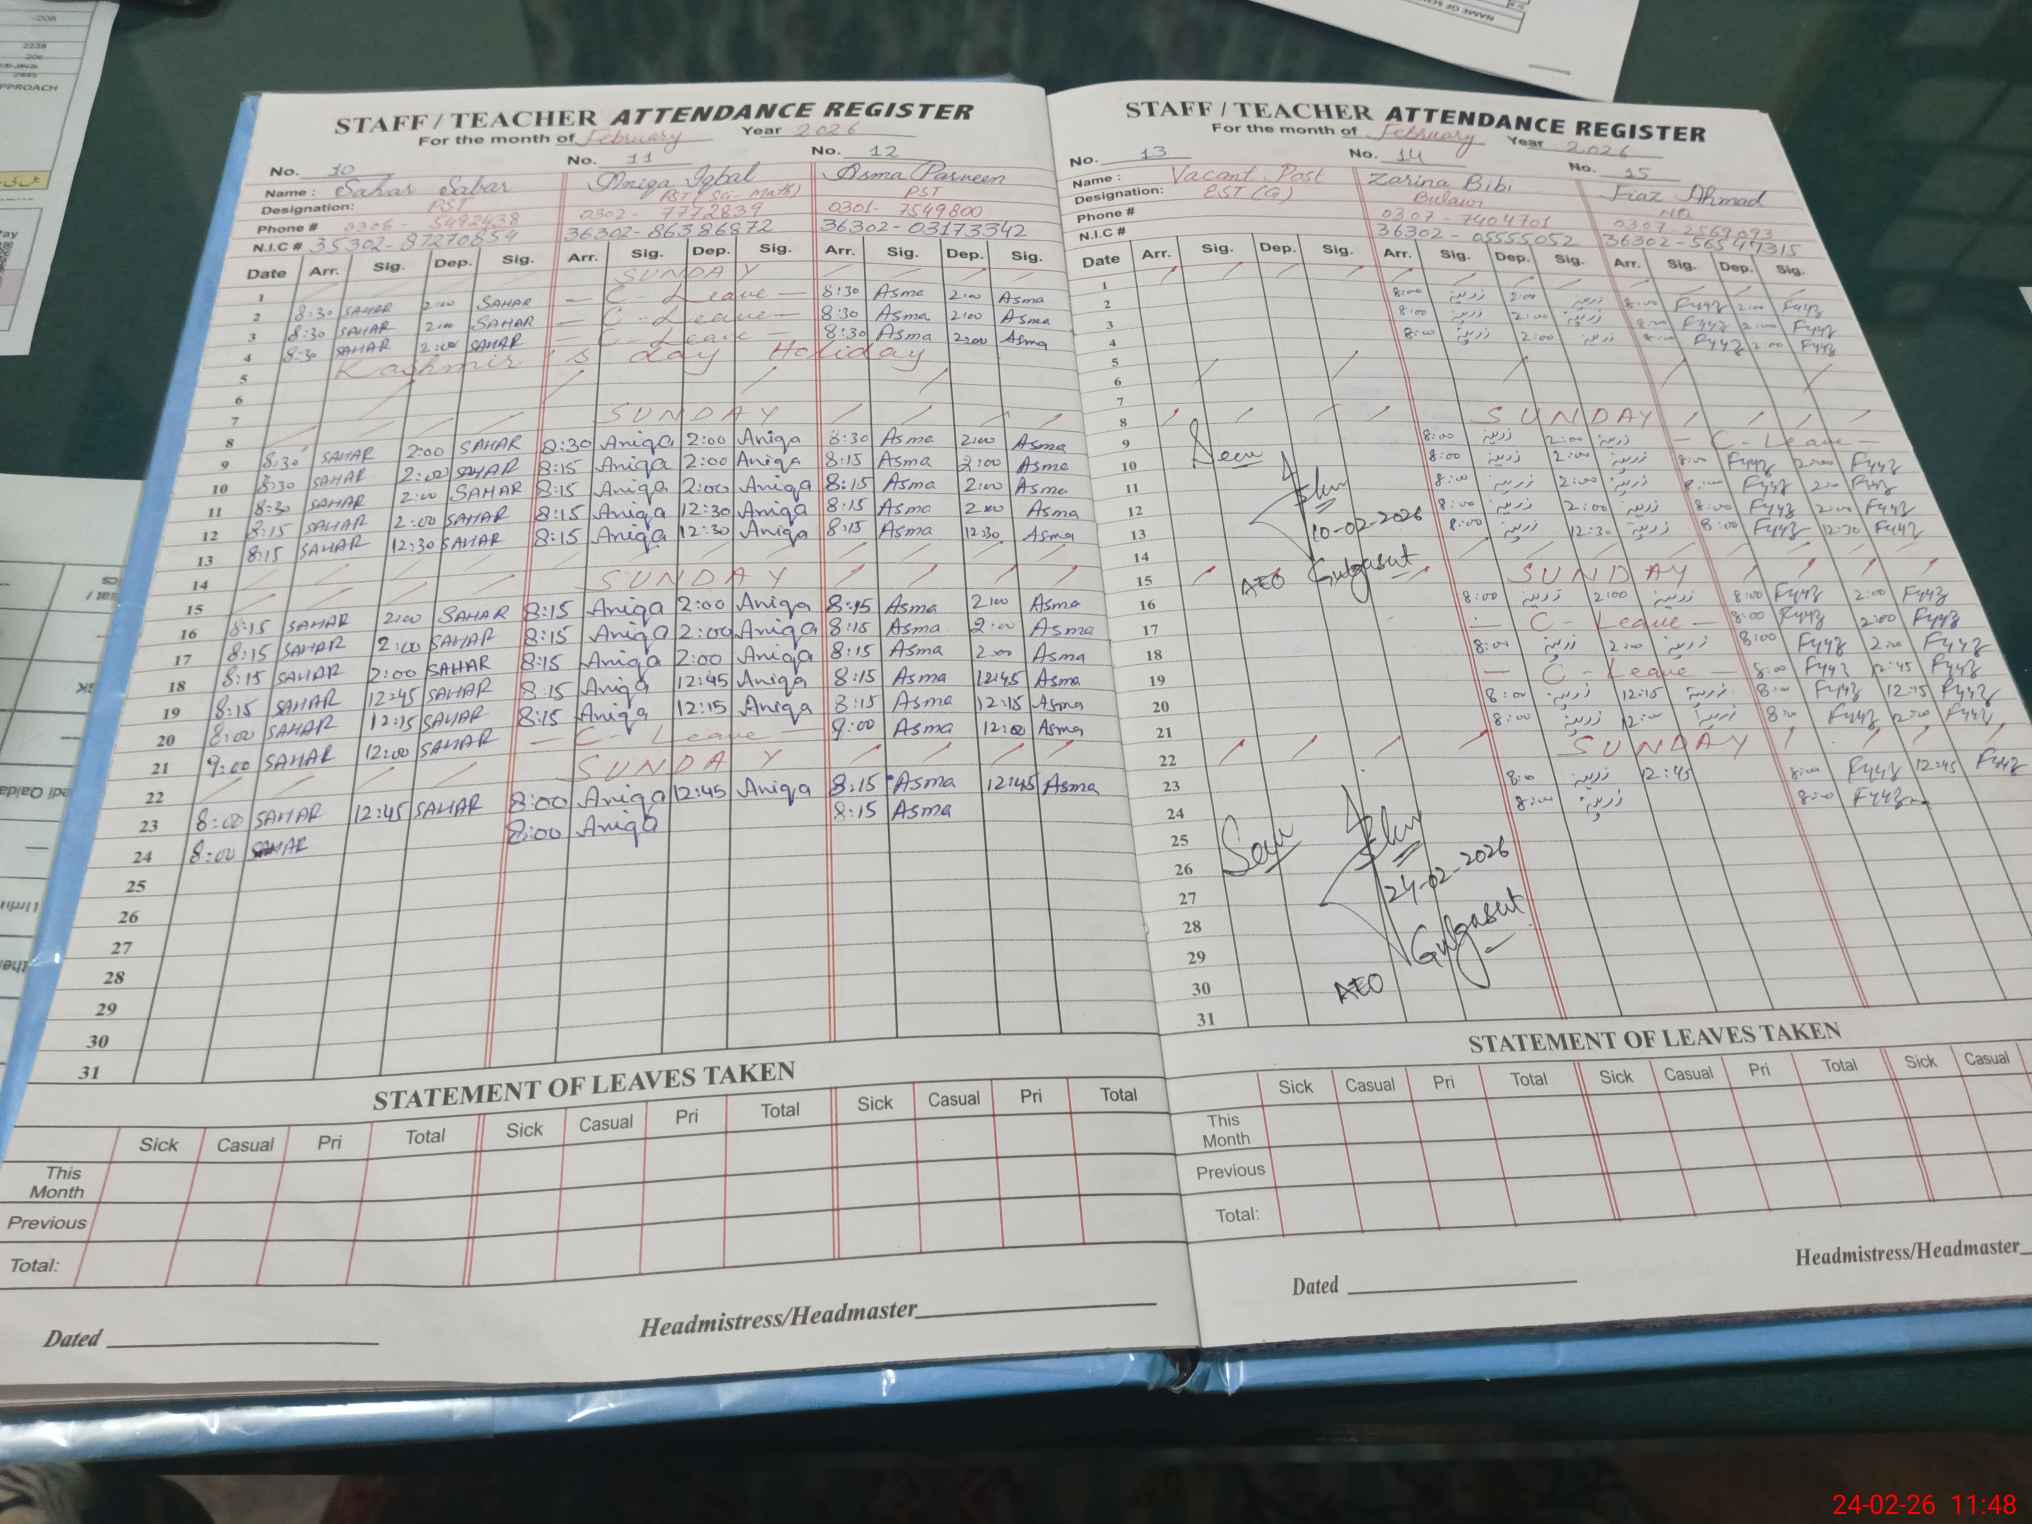 STAFF / TEACHER ATTENDANCE REGISTER
For the month of February Year 2026
No. 10 No. 11 No. 12
Name : Sahar Sabar Aniqa Iqbal Asma Parveen
Designation: PST PST (Sci-Math) PST
Phone # 0306 - 5492438 0302 - 7772839 0301- 7549800
N.I.C # 35302-87270854 36302-86386872 36302-03173342
Date Arr. Sig. Dep. Sig. Arr. Sig. Dep. Sig. Arr. Sig. Dep. Sig.
1 SUNDAY
2 8:30 SAHAR 2:00 SAHAR - C - Leave - 8:30 Asma 2:00 Asma
3 8:30 SAHAR 2:00 SAHAR - C - Leave - 8:30 Asma 2:00 Asma
4 8:30 SAHAR 2:00 SAHAR - C - Leave - 8:30 Asma 2:00 Asma
5 Kashmir 's day Holiday
6
7
8 SUNDAY
9 8:30 SAHAR 2:00 SAHAR 8:30 Aniqa 2:00 Aniqa 8:30 Asma 2:00 Asma
10 8:30 SAHAR 2:00 SAHAR 8:15 Aniqa 2:00 Aniqa 8:15 Asma 2:00 Asma
11 8:30 SAHAR 2:00 SAHAR 8:15 Aniqa 2:00 Aniqa 8:15 Asma 2:00 Asma
12 8:15 SAHAR 2:00 SAHAR 8:15 Aniqa 12:30 Aniqa 8:15 Asma 2:00 Asma
13 8:15 SAHAR 12:30 SAHAR 8:15 Aniqa 12:30 Aniqa 8:15 Asma 12:30 Asma
14
15 SUNDAY
16 8:15 SAHAR 2:00 SAHAR 8:15 Aniqa 2:00 Aniqa 8:15 Asma 2:00 Asma
17 8:15 SAHAR 2:00 SAHAR 8:15 Aniqa 2:00 Aniqa 8:15 Asma 2:00 Asma
18 8:15 SAHAR 2:00 SAHAR 8:15 Aniqa 2:00 Aniqa 8:15 Asma 2:00 Asma
19 8:15 SAHAR 12:45 SAHAR 8:15 Aniqa 12:45 Aniqa 8:15 Asma 12:45 Asma
20 8:00 SAHAR 12:15 SAHAR 8:15 Aniqa 12:15 Aniqa 8:15 Asma 12:15 Asma
21 9:00 SAHAR 12:00 SAHAR - C - Leave - 9:00 Asma 12:00 Asma
22 SUNDAY
23 8:00 SAHAR 12:45 SAHAR 8:00 Aniqa 12:45 Aniqa 8:15 Asma 12:45 Asma
24 8:00 SAHAR 8:00 Aniqa 8:15 Asma
25
26
27
28
29
30
31
STATEMENT OF LEAVES TAKEN
Sick Casual Pri Total Sick Casual Pri Total Sick Casual Pri Total
This Month
Previous
Total:
Dated Headmistress/Headmaster
STAFF / TEACHER ATTENDANCE REGISTER
For the month of February Year 2026
No. 13 No. 14 No. 15
Name : Vacant Post Zarina Bibi Fiaz Ahmad
Designation: EST (G) Bulawi NQ
Phone # 0307-7404701 0307-2569093
N.I.C # 36302-05555052 36302-56547315
Date Arr. Sig. Dep. Sig. Arr. Sig. Dep. Sig. Arr. Sig. Dep. Sig.
1
2 8:00 زرینہ 2:00 زرینہ 8:00 Fyyz 2:00 Fyyz
3 8:00 زرینہ 2:00 زرینہ 8:00 Fyyz 2:00 Fyyz
4 8:00 زرینہ 2:00 زرینہ 8:00 Fyyz 2:00 Fyyz
5
6
7
8 SUNDAY
9 Seen 8:00 زرینہ 2:00 زرینہ - C - Leave -
10 8:00 زرینہ 2:00 زرینہ 8:00 Fyyz 2:00 Fyyz
11 8:00 زرینہ 2:00 زرینہ 8:00 Fyyz 2:00 Fyyz
12 10-02-2026 8:00 زرینہ 2:00 زرینہ 8:00 Fyyz 2:00 Fyyz
13 8:00 زرینہ 12:30 زرینہ 8:00 Fyyz 12:30 Fyyz
14
15 AEO Gulgasut SUNDAY
16 8:00 زرینہ 2:00 زرینہ 8:00 Fyyz 2:00 Fyyz
17 - C - Leave - 8:00 Fyyz 2:00 Fyyz
18 8:00 زرینہ 2:00 زرینہ 8:00 Fyyz 2:00 Fyyz
19 - C - Leave - 8:00 Fyyz 12:45 Fyyz
20 8:00 زرینہ 12:15 زرینہ 8:00 Fyyz 12:15 Fyyz
21 8:00 زرینہ 12:00 زرینہ 8:00 Fyyz 12:00 Fyyz
22 SUNDAY
23 8:00 زرینہ 12:45 8:00 Fyyz 12:45 Fyyz
24 8:00 زرینہ 8:00 Fyyz
25
26 Seen
27 24-02-2026
28
29 Gulgasut
30 AEO
31
STATEMENT OF LEAVES TAKEN
Sick Casual Pri Total Sick Casual Pri Total Sick Casual
This Month
Previous
Total:
Dated Headmistress/Headmaster
24-02-26 11:48